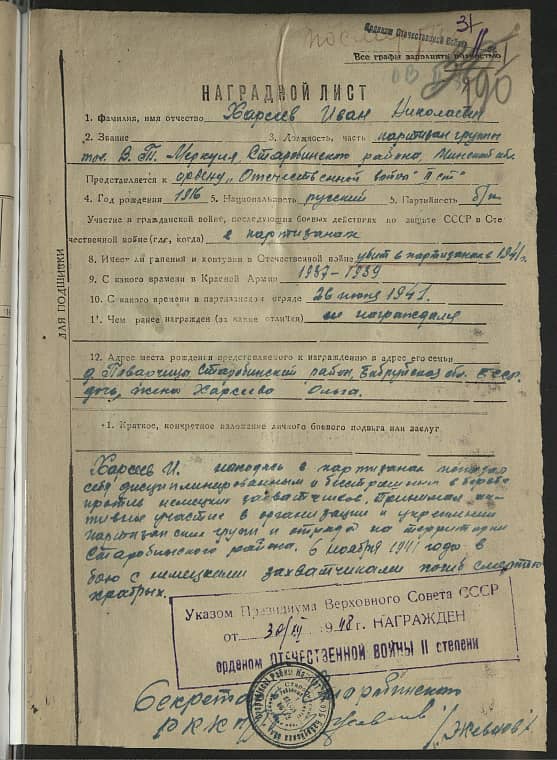 Орденом Отечественной Войны
Все графы заполнять полностью
НАГРАДНОЙ ЛИСТ
1. Фамилия, имя отчество Харсеев Иван Николаевич
2. Звание 3. Должность, часть партизан группы
тов. В. Т. Меркуля, Старобинского района, Минской обл.
Представляется к ордену „Отечественной войны II ст"
4. Год рождения 1916 5. Национальность русский 5. Партийность б/п
Участие в гражданской войне, последующих боевых действиях по защите СССР в Оте-
чественной войне (где, когда) в партизанах
8. Имеет ли ранения и контузии в Отечественной войне убит в партизанах в 1941 г.
9. С какого времени в Красной Армии 1937-1939
10. С какого времени в партизанском отряде 26 июня 1941.
11. Чем ранее награжден (за какие отличия) не награждался
12. Адрес места рождения представляемого к награждению и адрес его семьи
д. Старобинский район, Бобруйская обл. БССР.
дочь, жена Харсеева Ольга.
1. Краткое, конкретное изложение личного боевого подвига или заслуг
Харсеев И. находясь в партизанах показал
себя дисциплинированным и бесстрашным в борьбе
против немецких захватчиков. Принимал ак-
тивное участие в организации и укреплении
партизанских групп и отряда на территории
Старобинского района. 6 ноября 1941 года в
бою с немецкими захватчиками погиб смертью
храбрых.
Указом Президиума Верховного Совета СССР
от 30/XII 1948 г. НАГРАЖДЕН
орденом ОТЕЧЕСТВЕННОЙ ВОЙНЫ II степени
Секретарь Старобинского
РККП
ДЛЯ ПОДШИВКИ